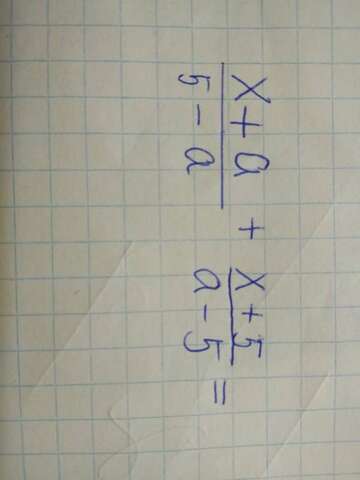 x + a / 5 - a + x + 5 / a - 5 =